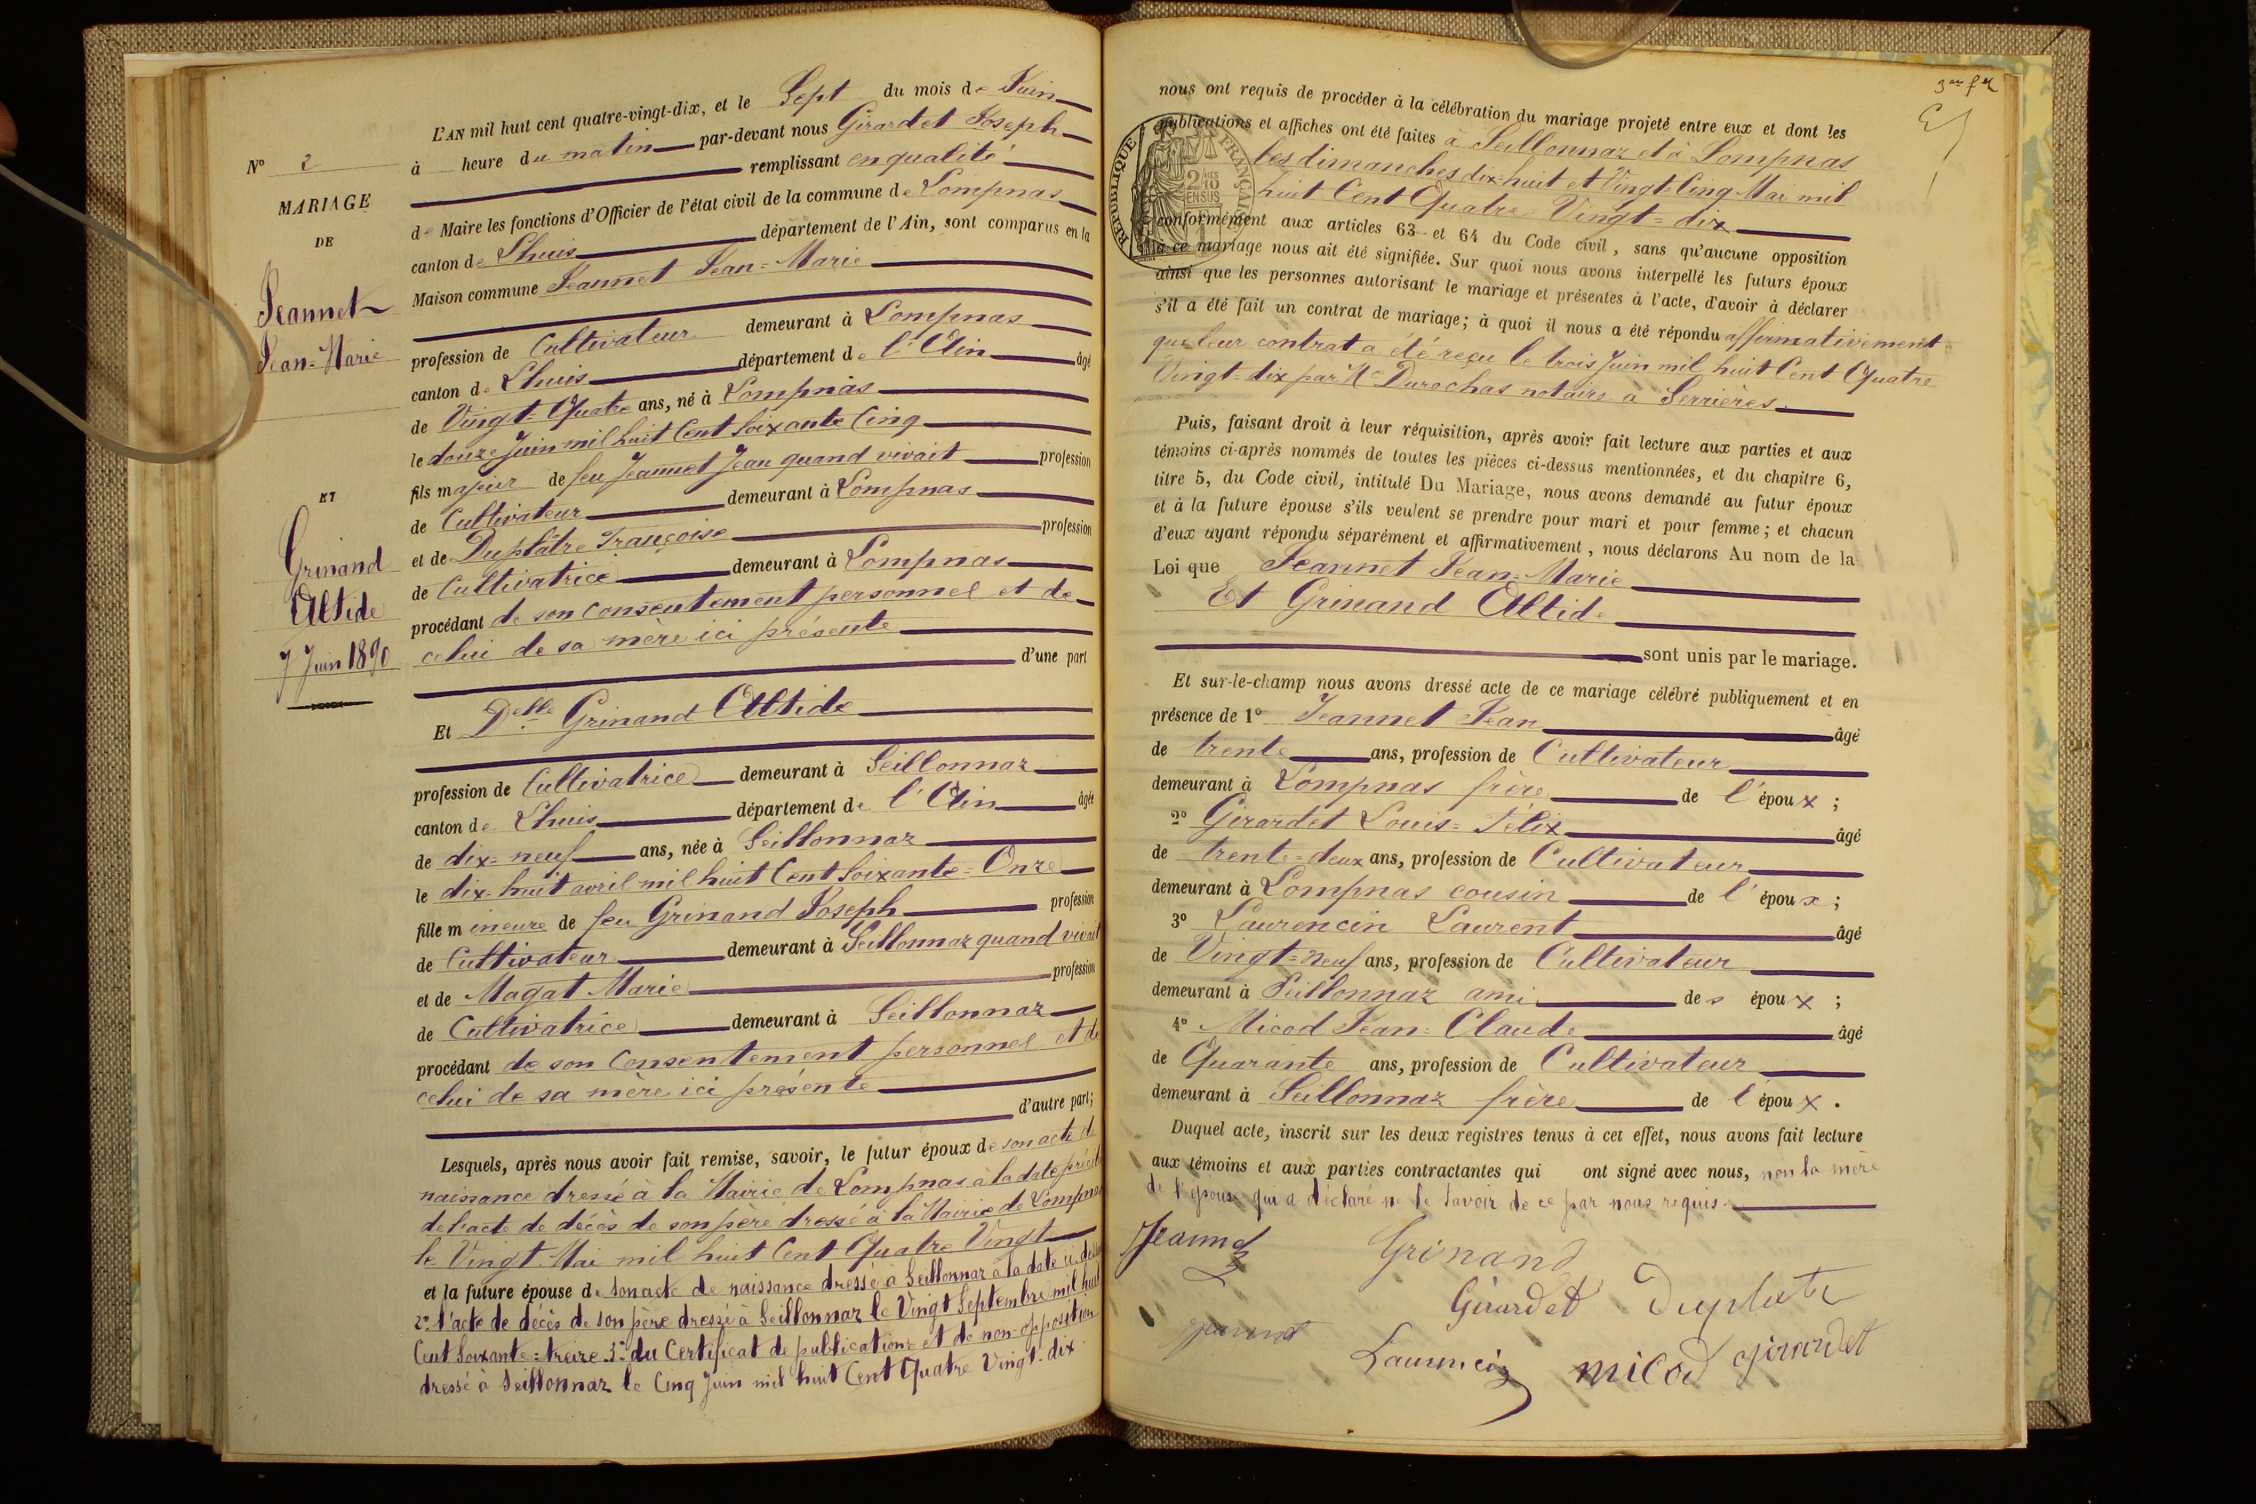 N° 2
MARIAGE
DE
Jeannet
Jean=Marie
ET
Grinand
Altide
7 Juin 1890
L'AN mil huit cent quatre-vingt-dix, et le Sept du mois de Juin
à heure du matin par-devant nous Girardet Joseph
remplissant en qualité
de Maire les fonctions d'Officier de l'état civil de la commune de Lompnas
canton de Lhuis département de l'Ain, sont comparus en la
Maison commune Jeannet Jean=Marie
profession de Cultivateur demeurant à Lompnas
canton de Lhuis département de l'Ain âgé
de Vingt=Quatre ans, né à Lompnas
le douze Juin mil huit Cent Soixante Cinq
fils majeur de feu Jeannet Jean quand vivait profession
de Cultivateur demeurant à Lompnas
et de Duplâtre Françoise profession
de Cultivatrice demeurant à Lompnas
procédant de son consentement personnel et de
celui de sa mère ici présente
d'une part
Et Delle Grinand Altide
profession de Cultivatrice demeurant à Seillonnaz
canton de Lhuis département de l'Ain âgée
de dix=neuf ans, née à Seillonnaz
le dix-huit avril mil huit Cent Soixante=Onze
fille mineure de feu Grinand Joseph profession
de Cultivateur demeurant à Seillonnaz quand vivait
et de Magat Marie profession
de Cultivatrice demeurant à Seillonnaz
procédant de son consentement personnel et de
celui de sa mère ici présente
d'autre part;
Lesquels, après nous avoir fait remise, savoir, le futur époux de son acte de
naissance dressé à la Mairie de Lompnas à la date précitée
de l'acte de décès de son père dressé à la Mairie de Lompnas
le Vingt Mai mil huit Cent Quatre Vingt
et la future épouse de son acte de naissance dressé à Seillonnaz à la date ci-dessus
2° l'acte de décès de son père dressé à Seillonnaz le Vingt Septembre mil huit
Cent Soixante=treize 3° du Certificat de publications et de non-opposition
dressé à Seillonnaz le Cinq Juin mil huit Cent Quatre Vingt-dix
nous ont requis de procéder à la célébration du mariage projeté entre eux et dont les
publications et affiches ont été faites à Seillonnaz et à Lompnas
les dimanches dix=huit et Vingt=Cinq Mai mil
huit Cent Quatre Vingt=dix
conformément aux articles 63 et 64 du Code civil, sans qu'aucune opposition
à ce mariage nous ait été signifiée. Sur quoi nous avons interpellé les futurs époux
ainsi que les personnes autorisant le mariage et présentes à l'acte, d'avoir à déclarer
s'il a été fait un contrat de mariage; à quoi il nous a été répondu affirmativement
que leur contrat a été reçu le trois Juin mil huit Cent Quatre
Vingt=dix par Me Durochas notaire à Serrières
Puis, faisant droit à leur réquisition, après avoir fait lecture aux parties et aux
témoins ci-après nommés de toutes les pièces ci-dessus mentionnées, et du chapitre 6,
titre 5, du Code civil, intitulé Du Mariage, nous avons demandé au futur époux
et à la future épouse s'ils veulent se prendre pour mari et pour femme; et chacun
d'eux ayant répondu séparément et affirmativement, nous déclarons Au nom de la
Loi que Jeannet Jean=Marie
Et Grinand Altide
sont unis par le mariage.
Et sur-le-champ nous avons dressé acte de ce mariage célébré publiquement et en
présence de 1° Jeannet Jean âgé
de trente ans, profession de Cultivateur
demeurant à Lompnas frère de l'époux;
2° Girardet Louis=Félix âgé
de trente=deux ans, profession de Cultivateur
demeurant à Lompnas cousin de l'époux;
3° Laurencin Laurent âgé
de Vingt=neuf ans, profession de Cultivateur
demeurant à Seillonnaz ami des époux;
4° Micod Jean=Claude âgé
de Quarante ans, profession de Cultivateur
demeurant à Seillonnaz frère de l'époux.
Duquel acte, inscrit sur les deux registres tenus à cet effet, nous avons fait lecture
aux témoins et aux parties contractantes qui ont signé avec nous, non la mère
de l'épouse qui a déclaré ne le savoir de ce par nous requis.
Jeannet
Grinand
Girardet Duplatre
Jeannet
Laurencin micod girardet
RÉPUBLIQUE FRANÇAISE